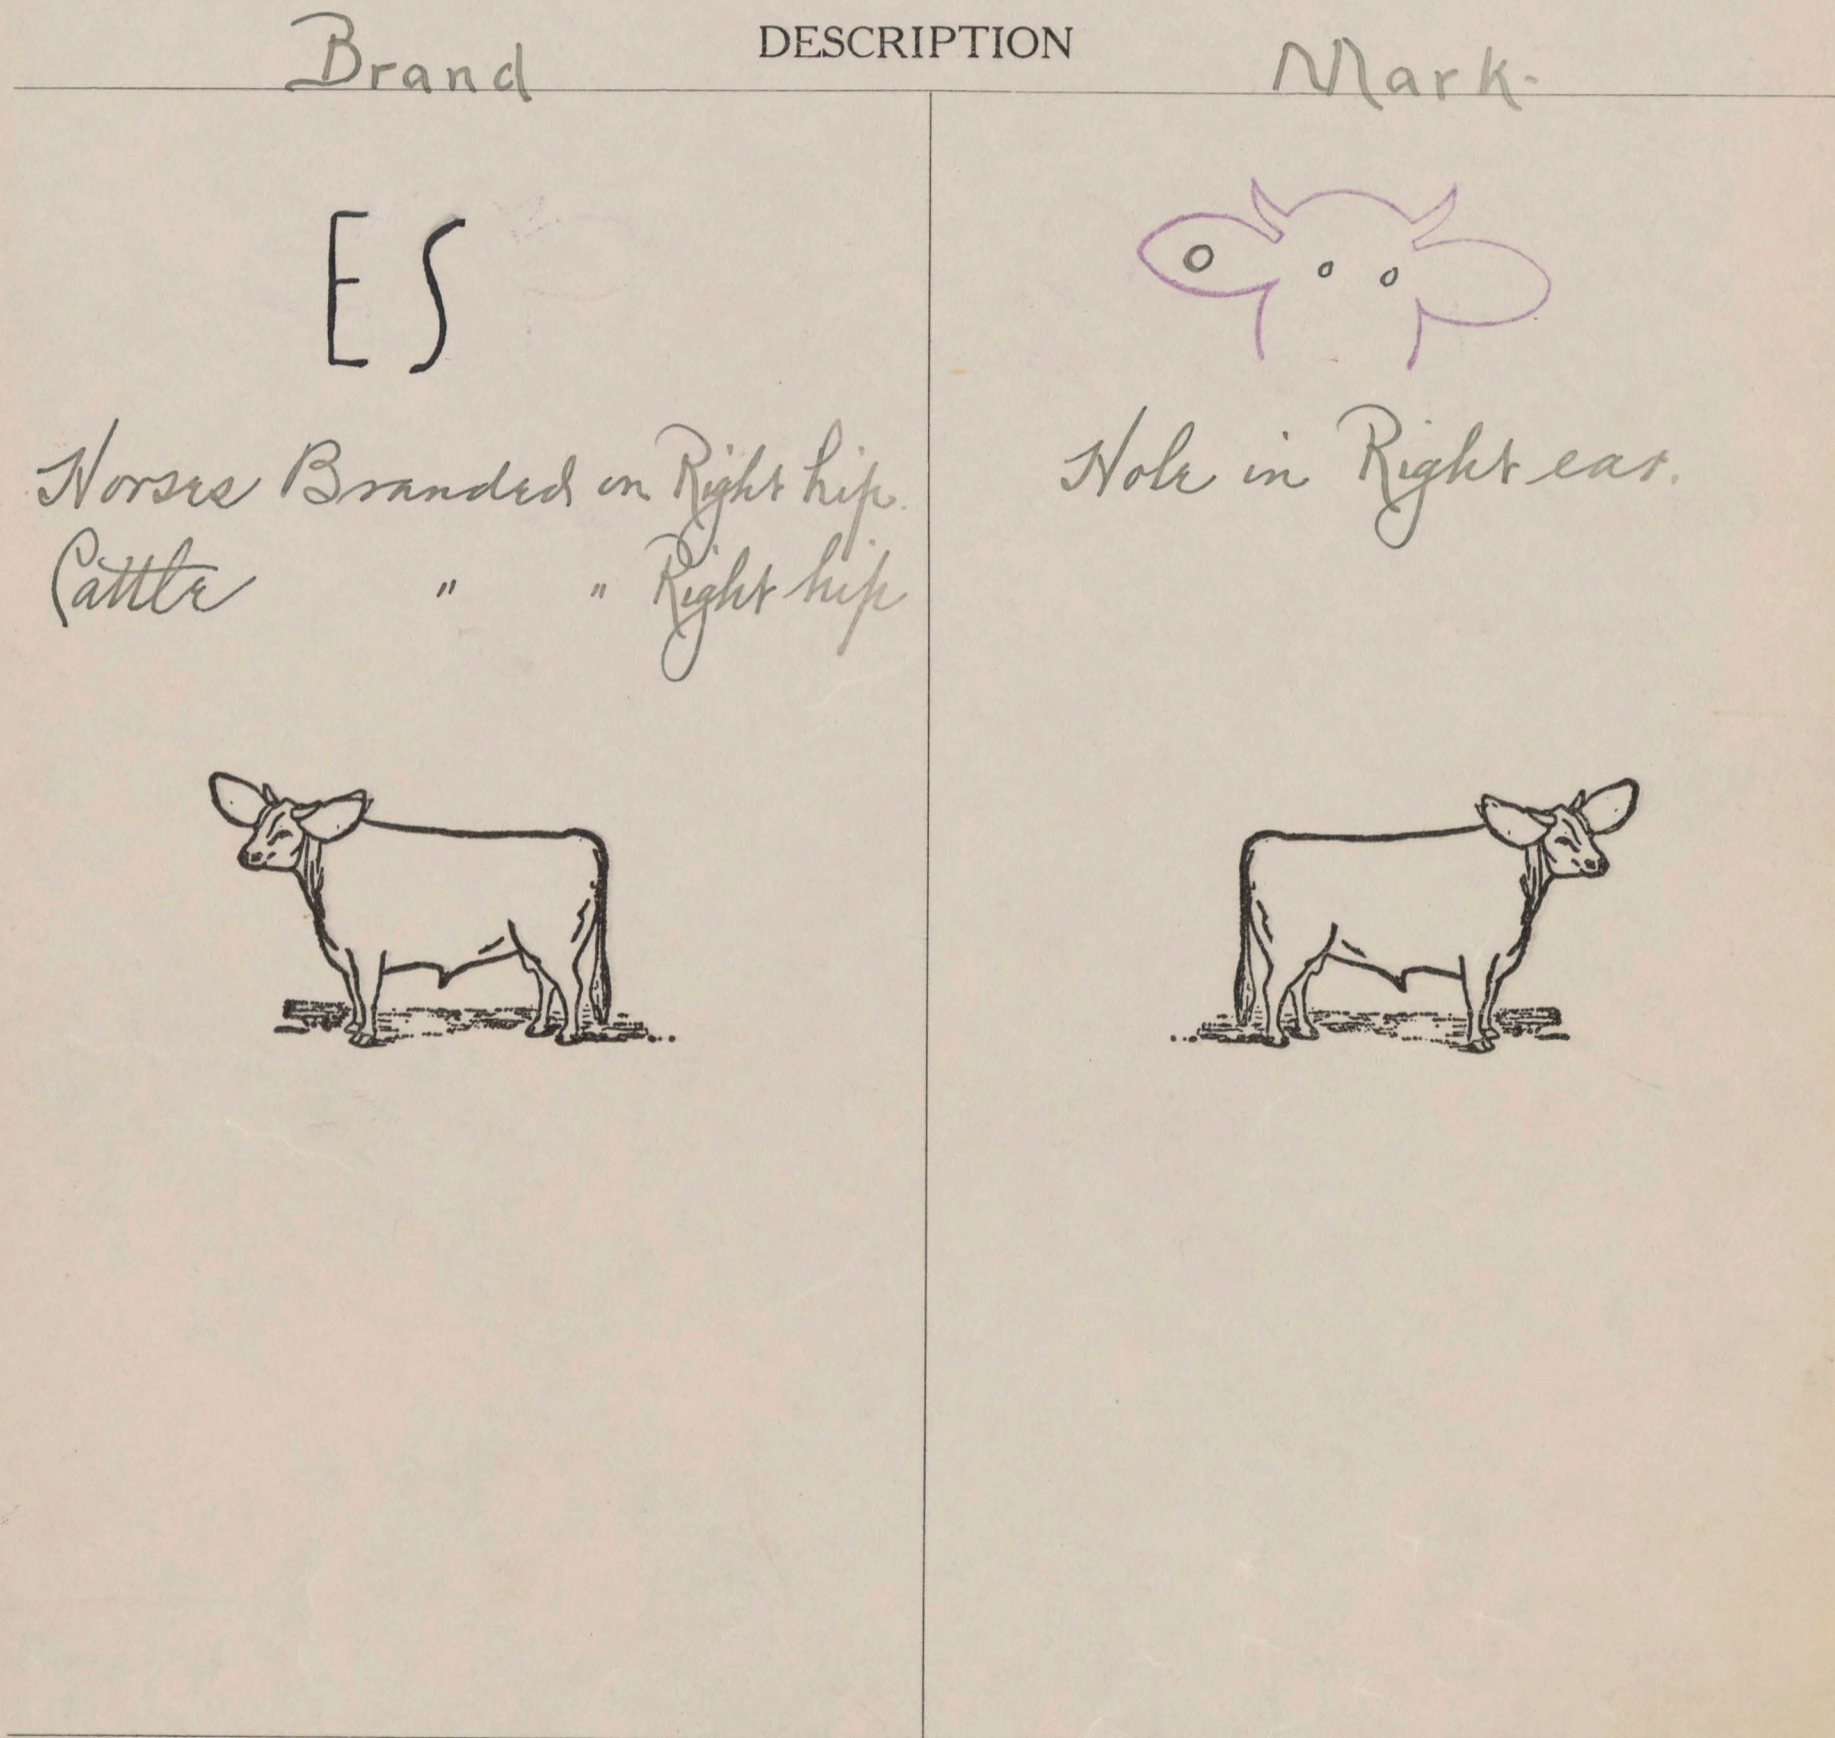 DESCRIPTION
Brand
Mark.
ES
Horses Branded on Right hip.
Cattle " " Right hip
Hole in Right ear.